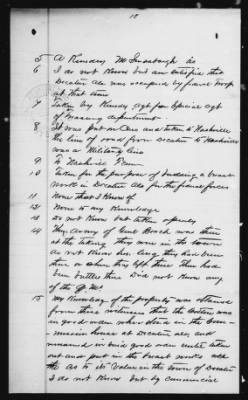 18
5 A Kinsley Mc
6 I do not Know but am satisfied that
Decatur Ala was occupied by federal troops
at that time
7 Taken by Kinsley Agt for Special Agt
of Treasury department
8 It was put on Cars and taken to Nashville
the line of road from Decatur to Nashville
was a Military line
9 To Nashville Tenn
10 Taken for the purpose of building a breast
work in Decatur Ala for the federal forces
11 None that I Know of
12 None to my Knowledge
13 Do not Know but taken openly
14 The Army of Genl was then
at the taking they were in the town
do not Know how long they had been
there or when they left there there had
been battles there Did not Know any
of the
15 My Knowledge of the property was obtained
from these witnesses that the Cotton was
in good order when stored in the Com-
mission house at Decatur Ala and
remained in said good order until taken
out and put in the breast works
as to its value in the town of Decatur
I do not Know but by commercial